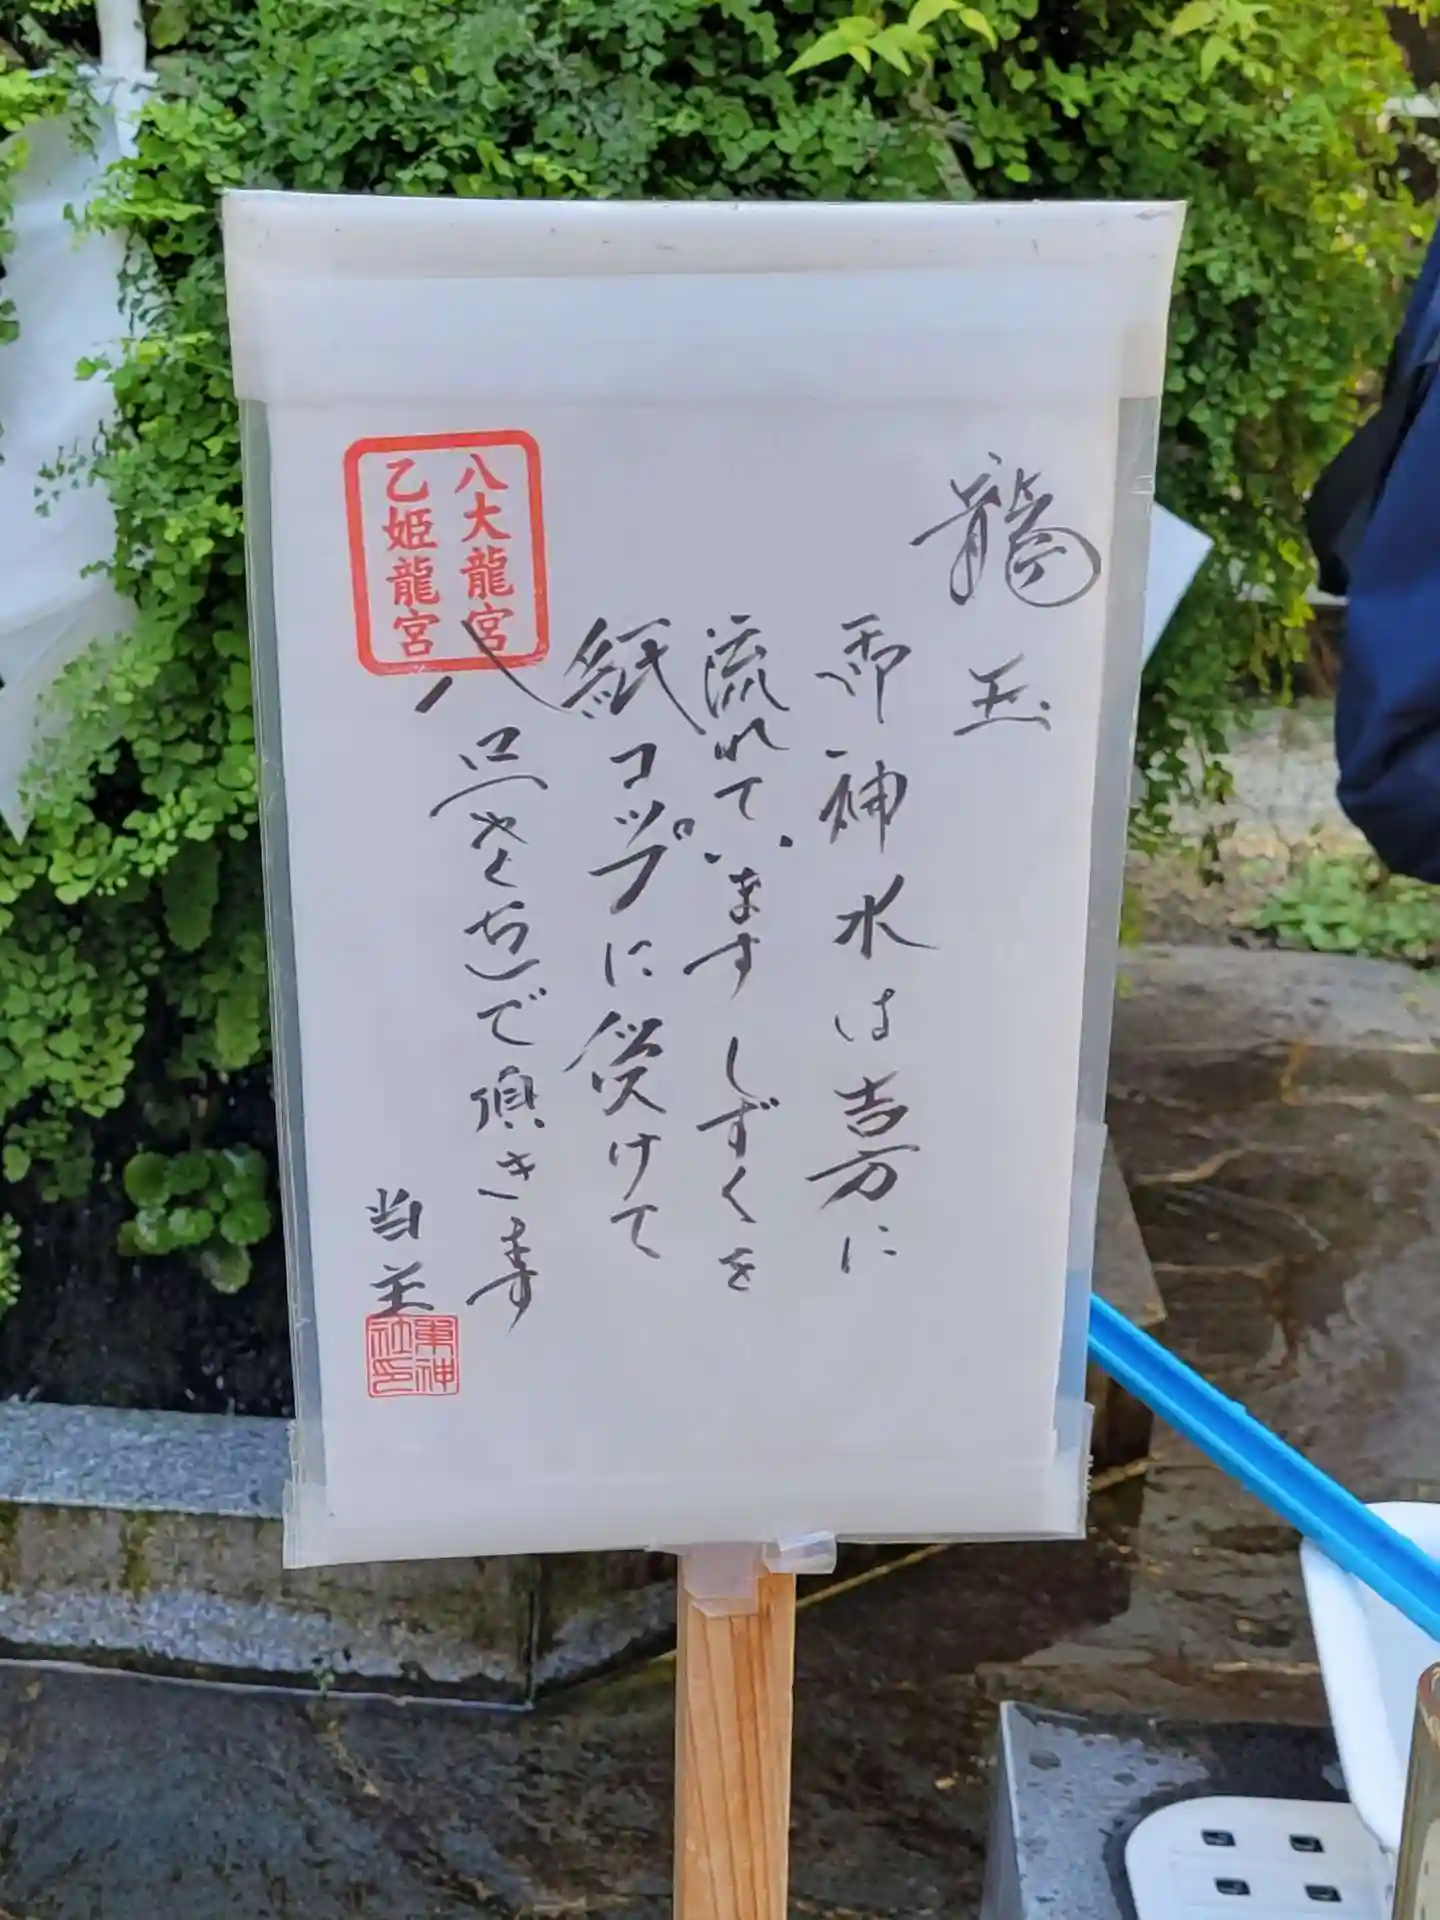 龍玉
御神水は吉方に
流れています しずくを
紙コップに受けて
八口(やくち)で頂きます
当主
八大龍宮
乙姫龍宮
東神
社印